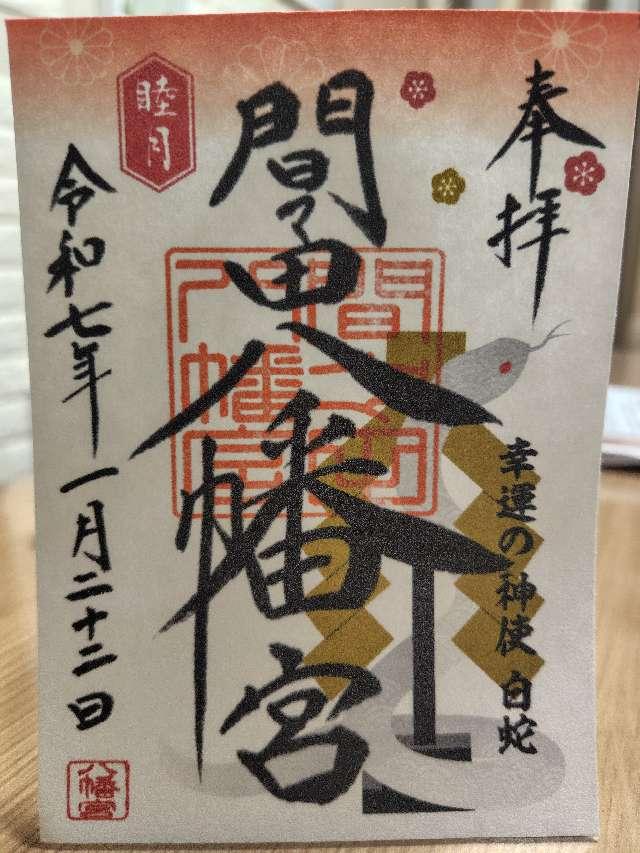 奉拝
幸運の神使 白蛇
間々田八幡宮
睦月
令和七年一月二十二日
八幡宮